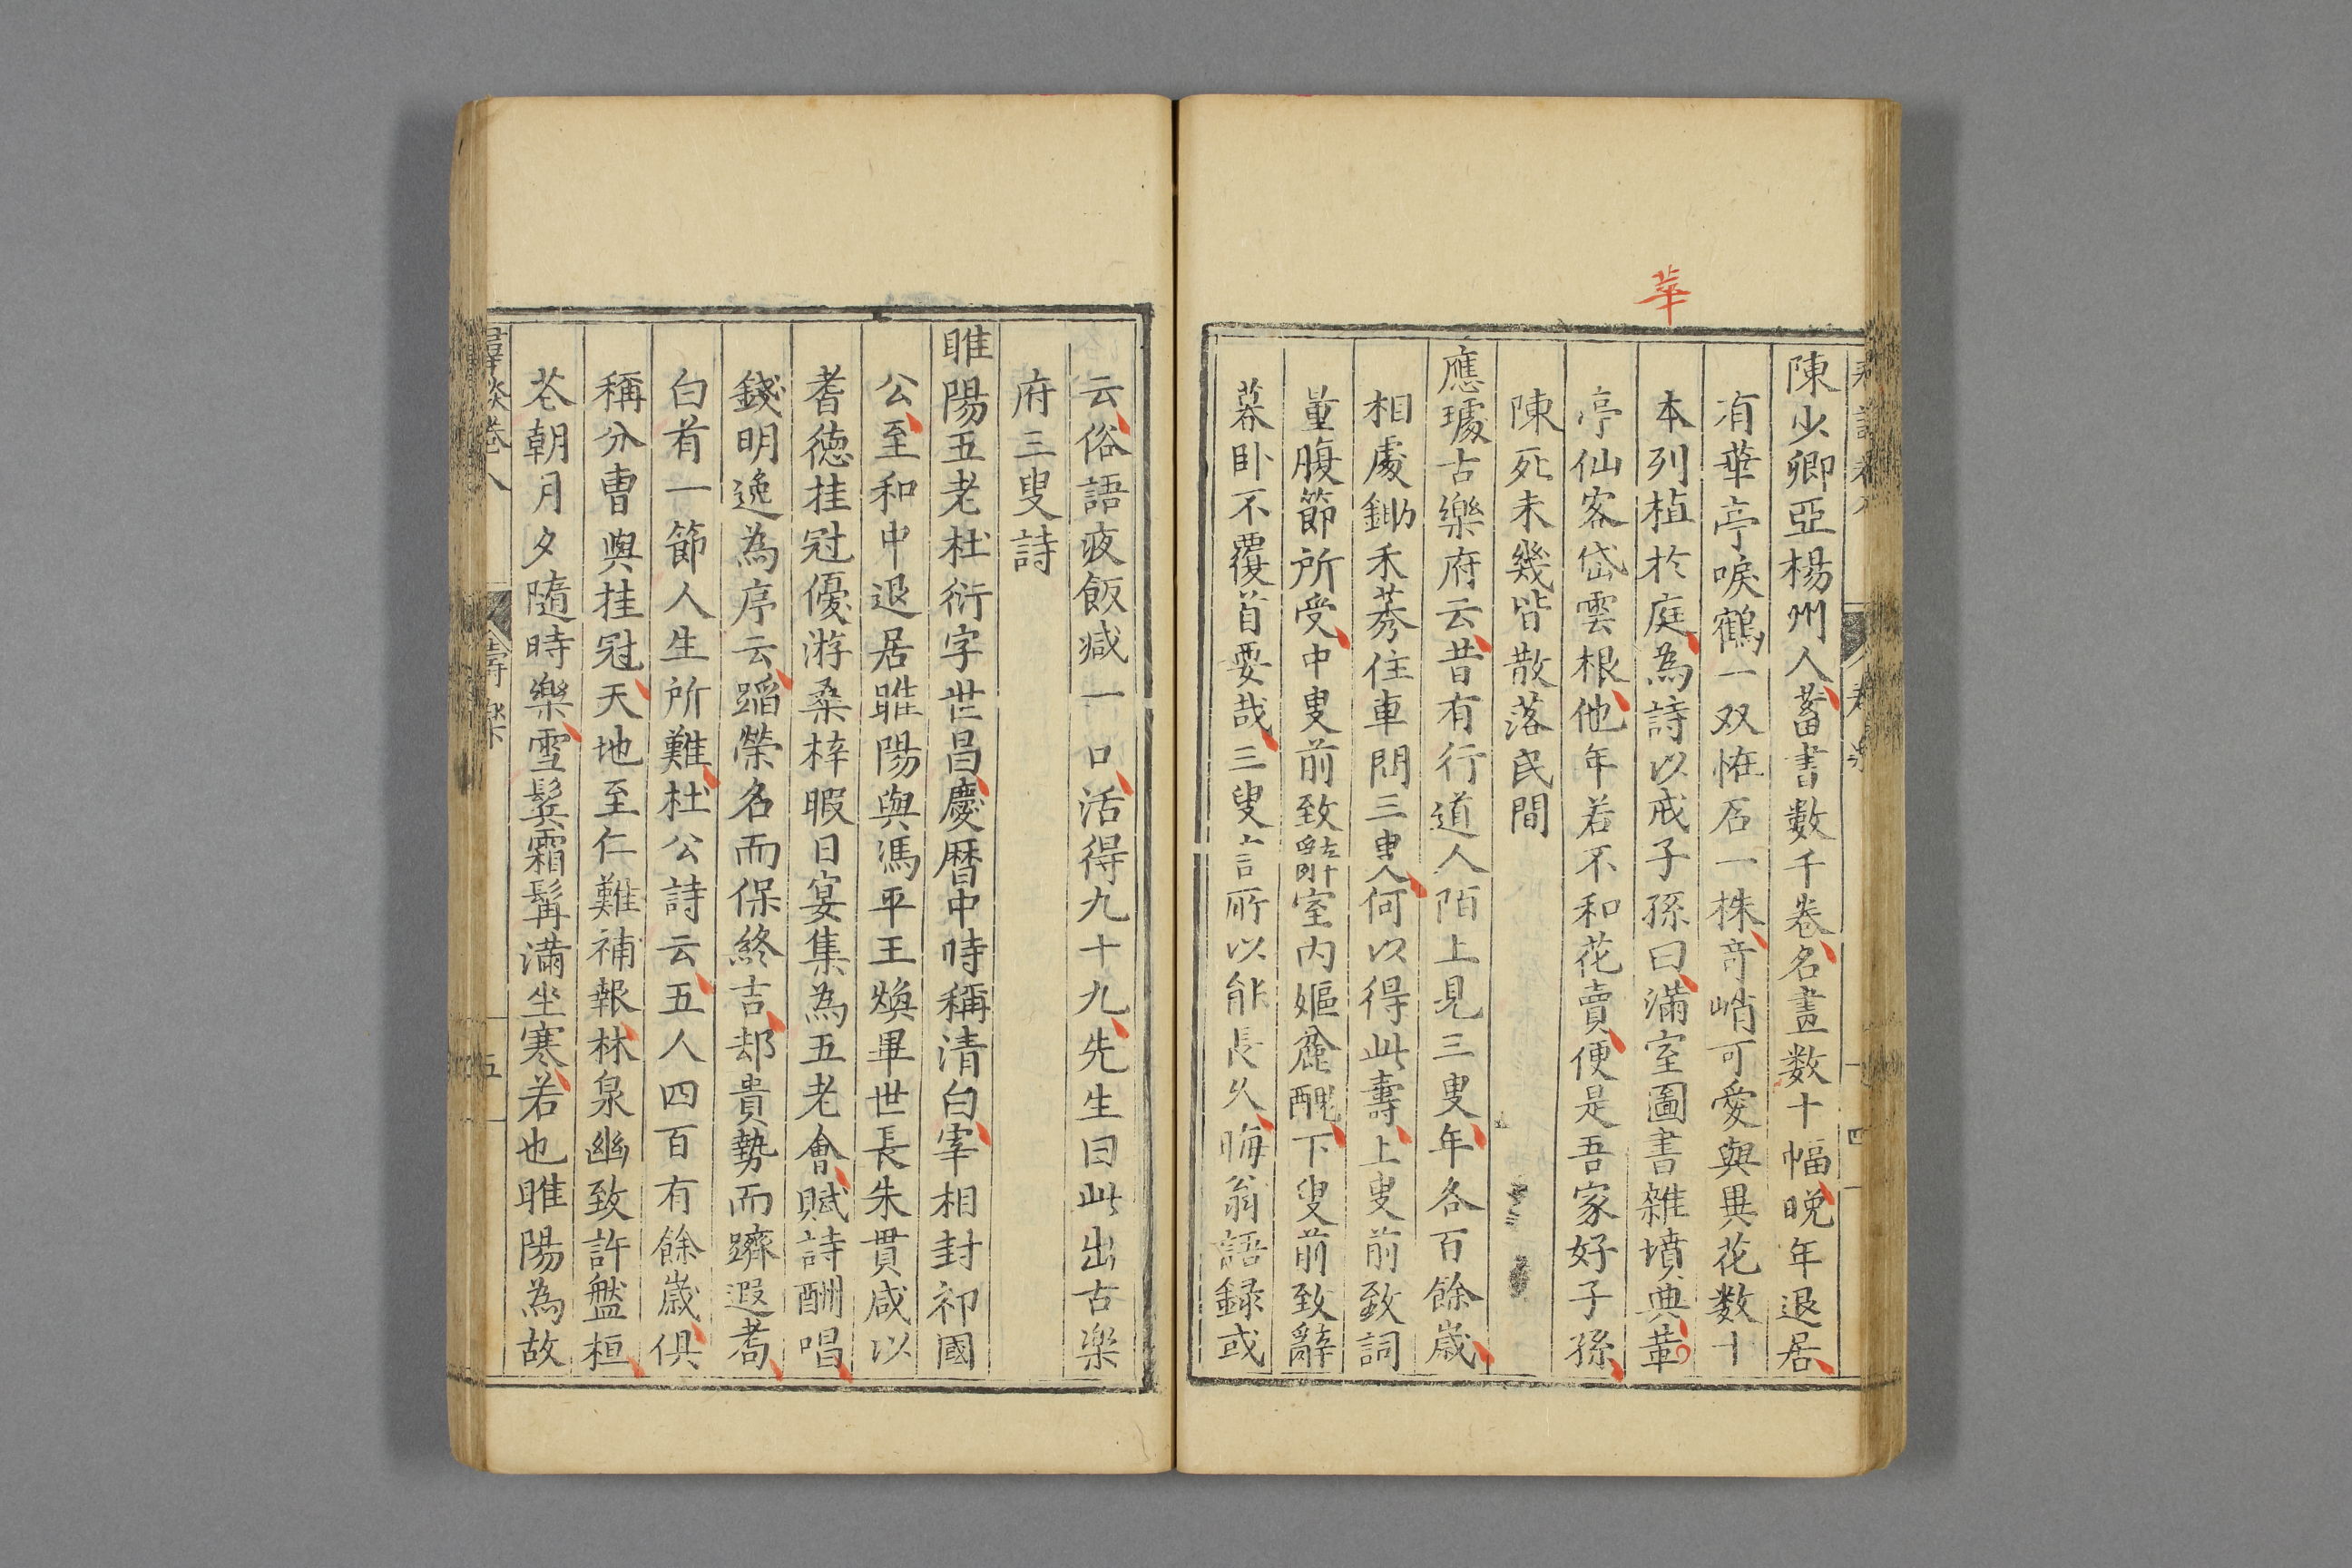 華
陳少卿亞楊州人蓄書數千卷名畫数十幅晚年退居
有華亭唳鶴一双恠石一株竒峭可愛與異花数十
本列植於庭為詩以戒子孫曰滿室圖書雜墳典華
亭仙客岱雲根他年若不和花賣便是吾家好子孫
陳死未幾皆散落民間
應璩古樂府云昔有行道人陌上見三叟年各百餘歳
相䖏鋤禾莠住車問三叟何以得此壽上叟前致詞
量腹節所受中叟前致辭室内嫗麄醜下叟前致辭
暮卧不覆首要哉三叟言所以能長久晦翁語録或
云俗語夜飯减一口活得九十九先生曰此出古楽
府三叟詩
睢陽五老杜衍字世昌慶曆中時稱清白宰相封祁國
公至和中退居睢陽與馮平王煥畢世長朱貫咸以
耆德挂冠優游桑梓暇日宴集為五老會賦詩酬唱
錢明逸為序云蹈榮名而保終吉却貴勢而躋遐耉
白首一節人生所難杜公詩云五人四百有餘歳俱
稱分曹與挂冠天地至仁難補報林泉幽致許盤桓
花朝月夕隨時樂雪鬂霜髯滿坐寒若也睢陽為故
五